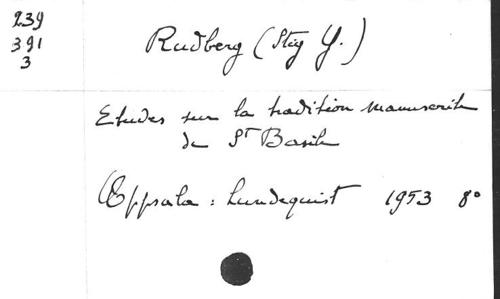 239
391
3
Rudberg (Stig Y.)
Etudes sur la tradition manuscrite
de St Basile
Uppsala : Lundequist 1953 8°